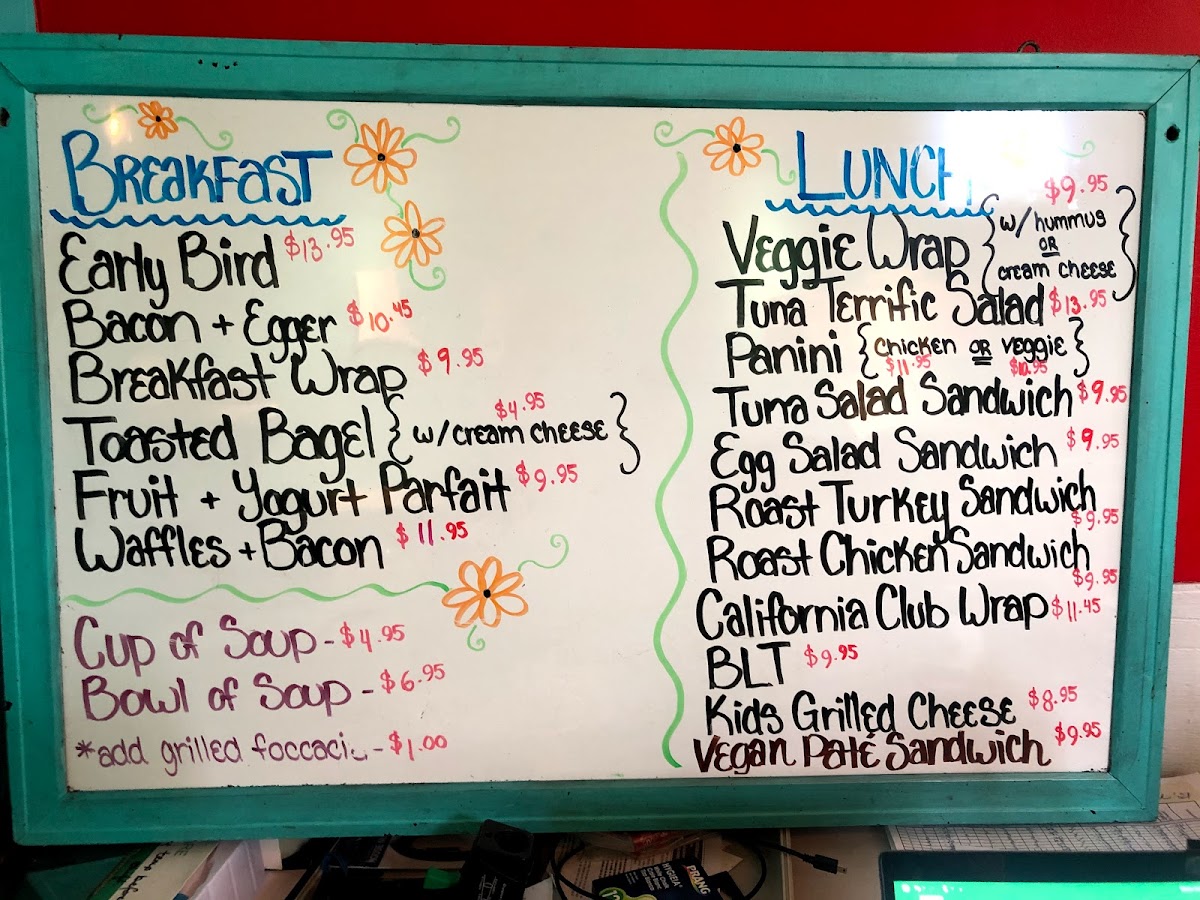 Breakfast
Early Bird $13.95
Bacon + Egger $10.45
Breakfast Wrap $9.95
Toasted Bagel {w/cream cheese} $4.95
Fruit + Yogurt Parfait $9.95
Waffles + Bacon $11.95
Cup of Soup - $4.95
Bowl of Soup - $6.95
*add grilled foccacia - $1.00
Lunch
Veggie Wrap {w/ hummus OR cream cheese} $9.95
Tuna Terrific Salad $13.95
Panini {chicken OR veggie}
$11.95 $10.95
Tuna Salad Sandwich $9.95
Egg Salad Sandwich $9.95
Roast Turkey Sandwich
$9.95
Roast Chicken Sandwich
$9.95
California Club Wrap $11.45
BLT $9.95
Kids Grilled Cheese $8.95
Vegan Paté Sandwich $9.95
HYGIEIA
PRANG